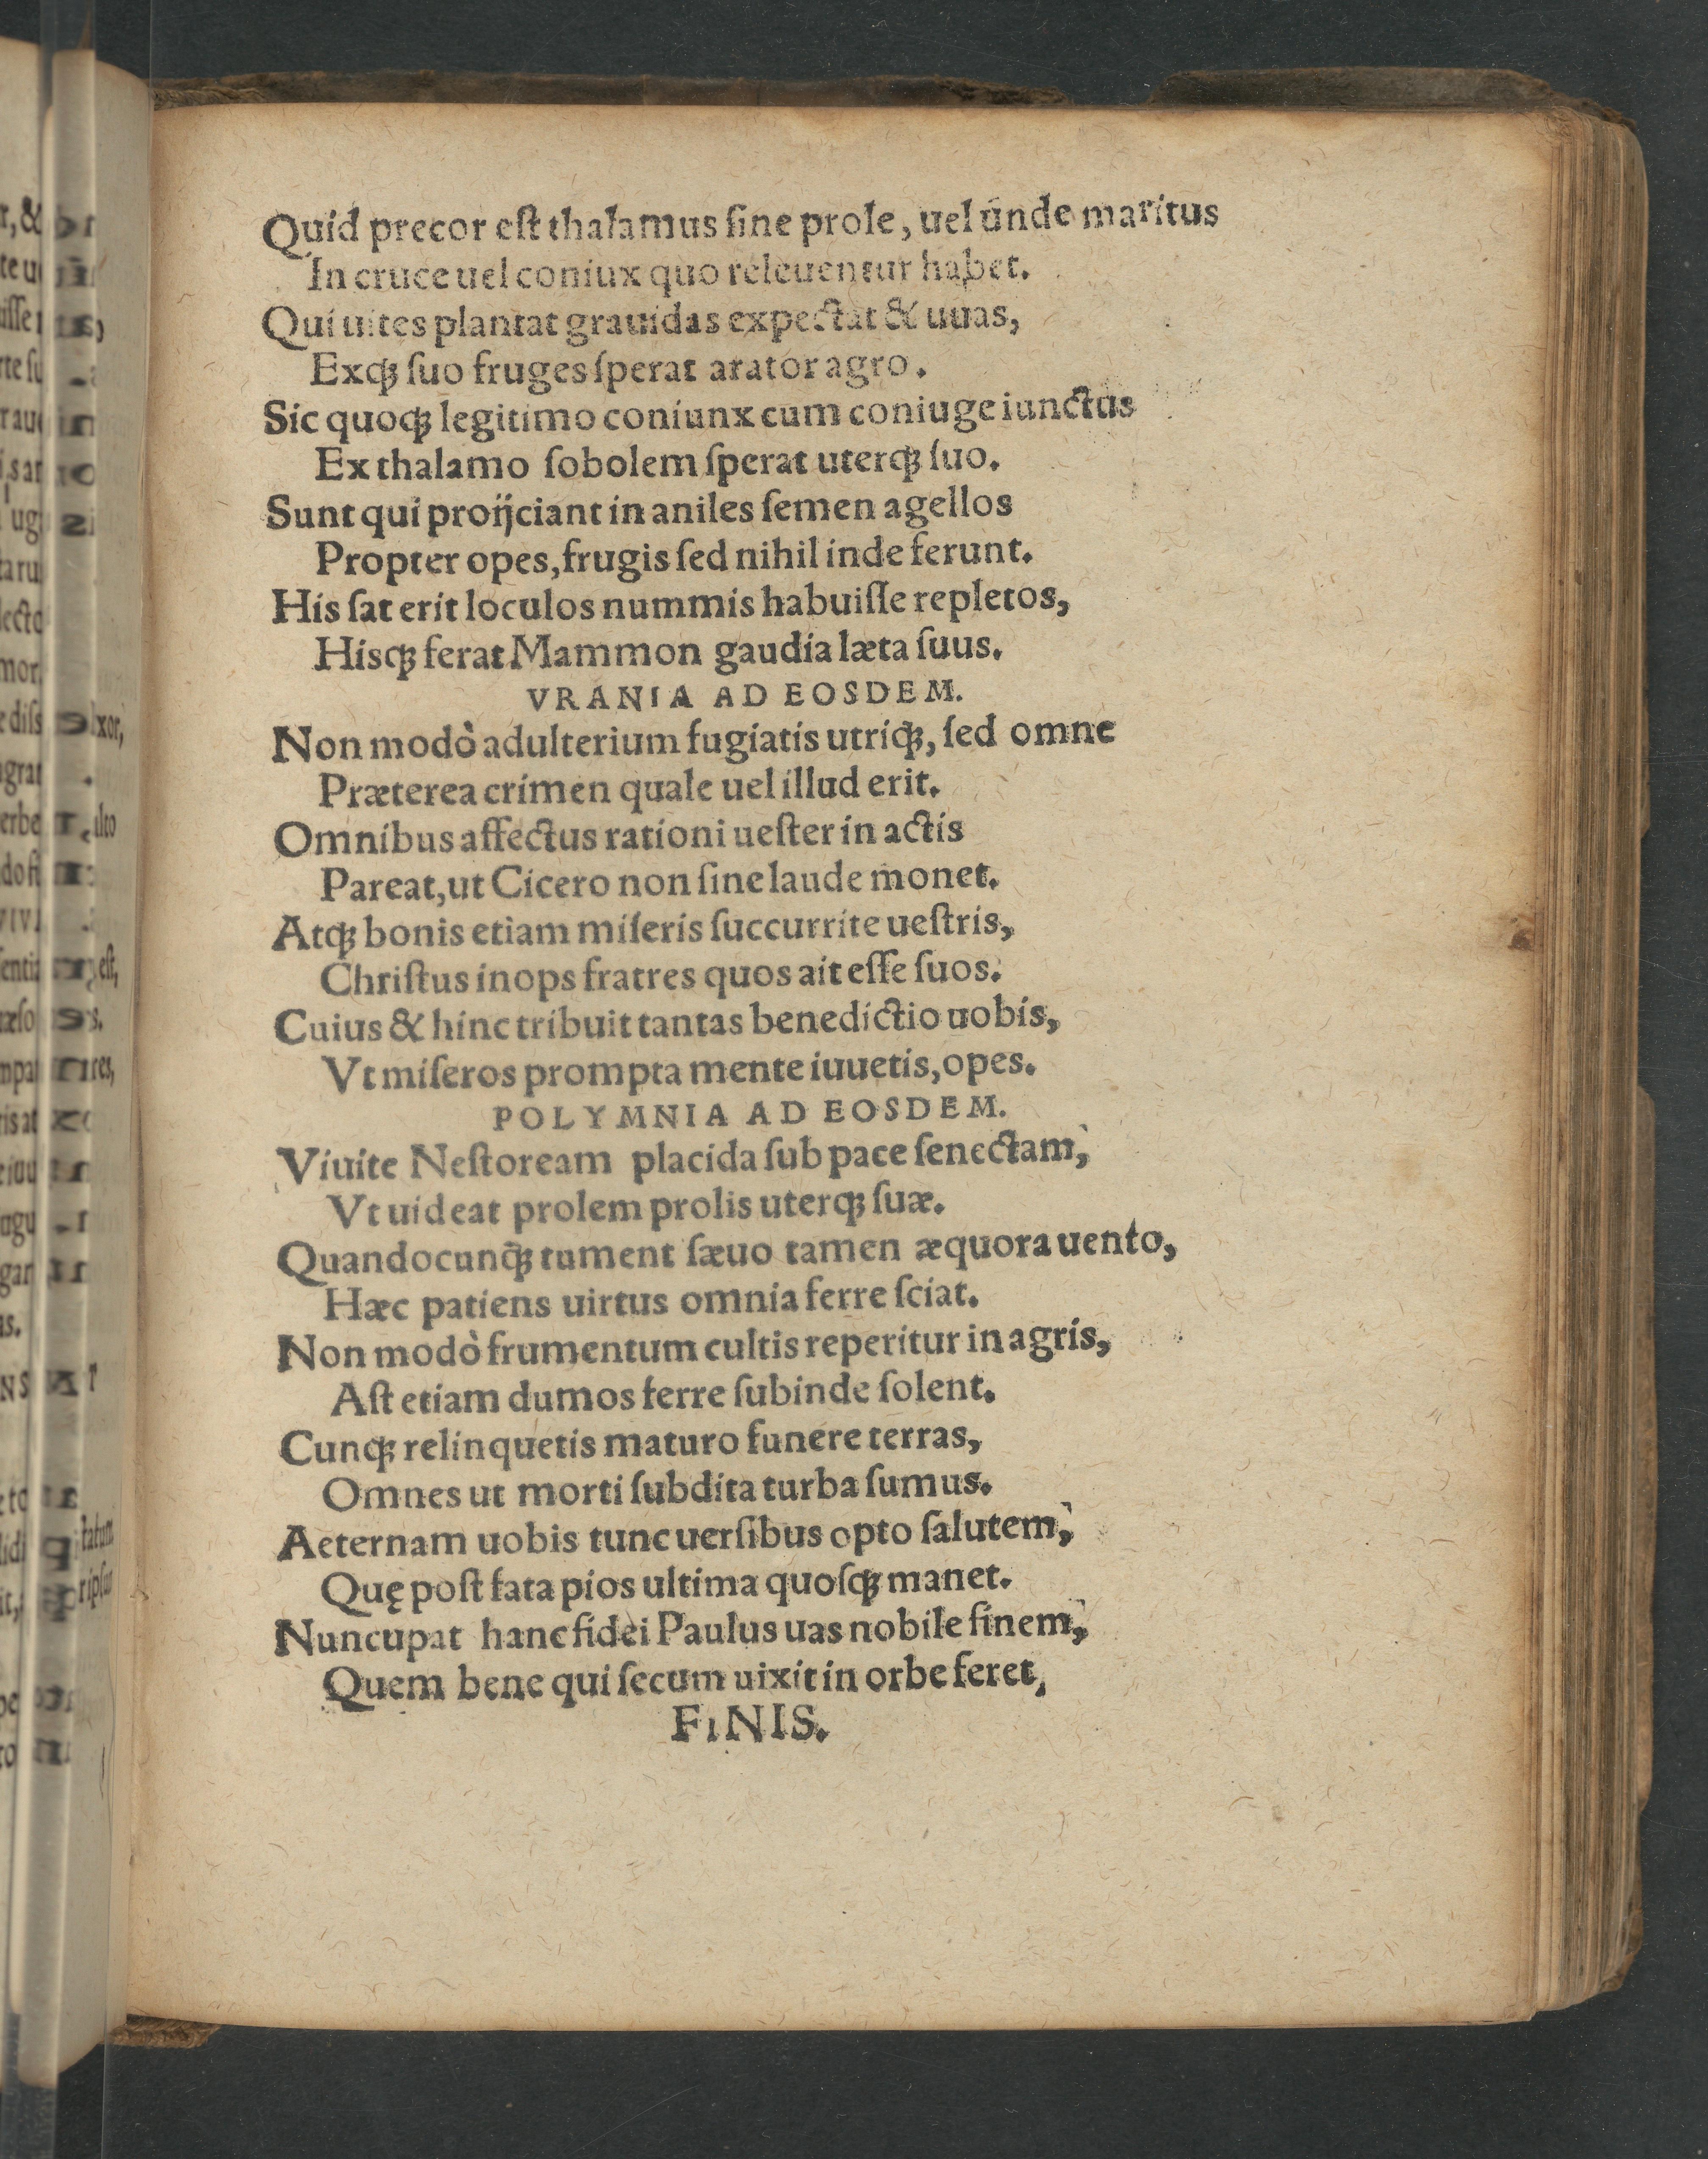 Quid precor eſt thalamus ſine prole, uel unde maritus
In cruce uel coniux quo releuentur habet.
Qui uites plantat grauidas expectat & uuas,
Exqꝫ ſuo fruges ſperat arator agro.
Sic quoqꝫ legitimo coniunx cum coniuge iunctus
Ex thalamo ſobolem ſperat uterqꝫ ſuo.
Sunt qui proijciant in aniles ſemen agellos
Propter opes, frugis ſed nihil inde ferunt.
His ſat erit loculos nummis habuiſſe repletos,
Hisqꝫ ferat Mammon gaudia læta ſuus.
VRANIA AD EOSDEM.
Non modò adulterium fugiatis utriqꝫ, ſed omne
Præterea crimen quale uel illud erit.
Omnibus affectus rationi ueſter in actis
Pareat, ut Cicero non ſine laude monet.
Atqꝫ bonis etiam miſeris ſuccurrite ueſtris,
Chriſtus inops fratres quos ait eſſe ſuos.
Cuius & hinc tribuit tantas benedictio uobis,
Vt miſeros prompta mente iuuetis, opes.
POLYMNIA AD EOSDEM.
Viuite Neſtoream placida ſub pace ſenectam,
Vt uideat prolem prolis uterqꝫ ſuæ.
Quandocunqꝫ tument ſæuo tamen æquora uento,
Hæc patiens uirtus omnia ferre ſciat.
Non modò frumentum cultis reperitur in agris,
Aſt etiam dumos ferre ſubinde ſolent.
Cunqꝫ relinquetis maturo funere terras,
Omnes ut morti ſubdita turba ſumus.
Aeternam uobis tunc uerſibus opto ſalutem,
Quę poſt fata pios ultima quoſqꝫ manet.
Nuncupat hanc fidei Paulus uas nobile finem,
Quem bene qui ſecum uixit in orbe feret,
FINIS.